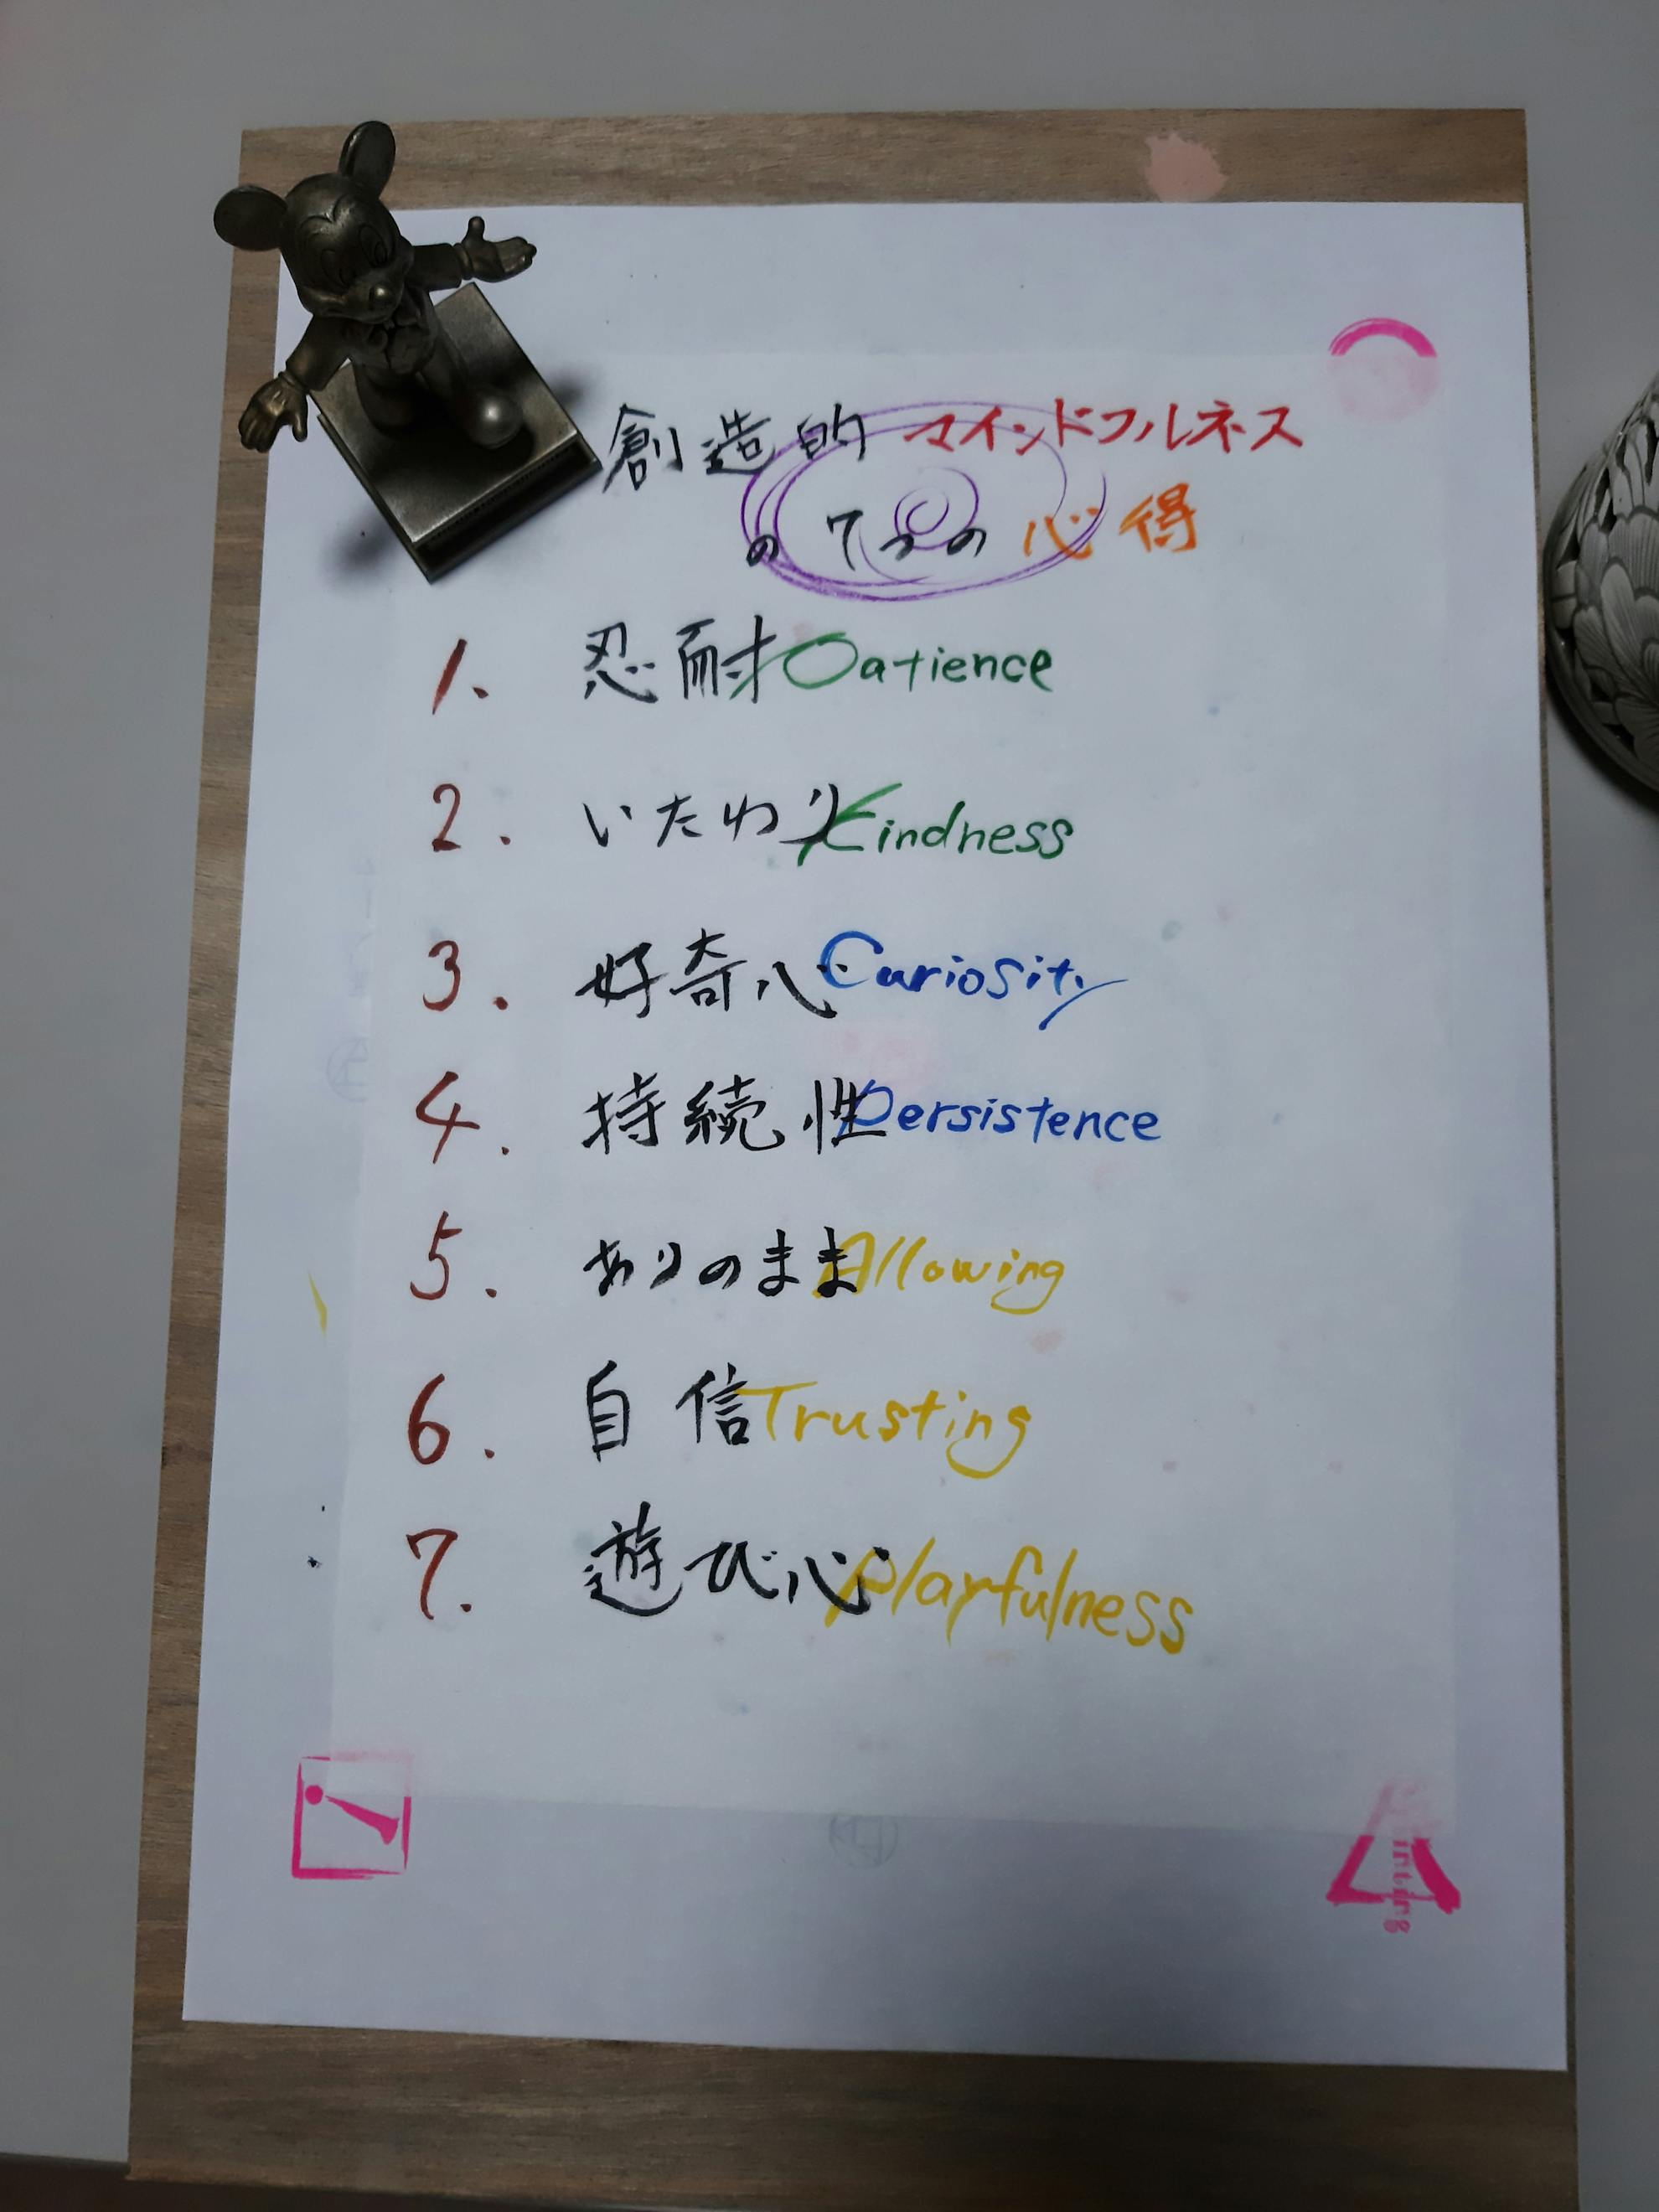 創造的マインドフルネス
の7つの心得
1. 忍耐Oatience
2. いたわりKindness
3. 好奇心Curiosity
4. 持続性Persistence
5. ありのままAllowing
6. 自信Trusting
7. 遊び心Playfulness